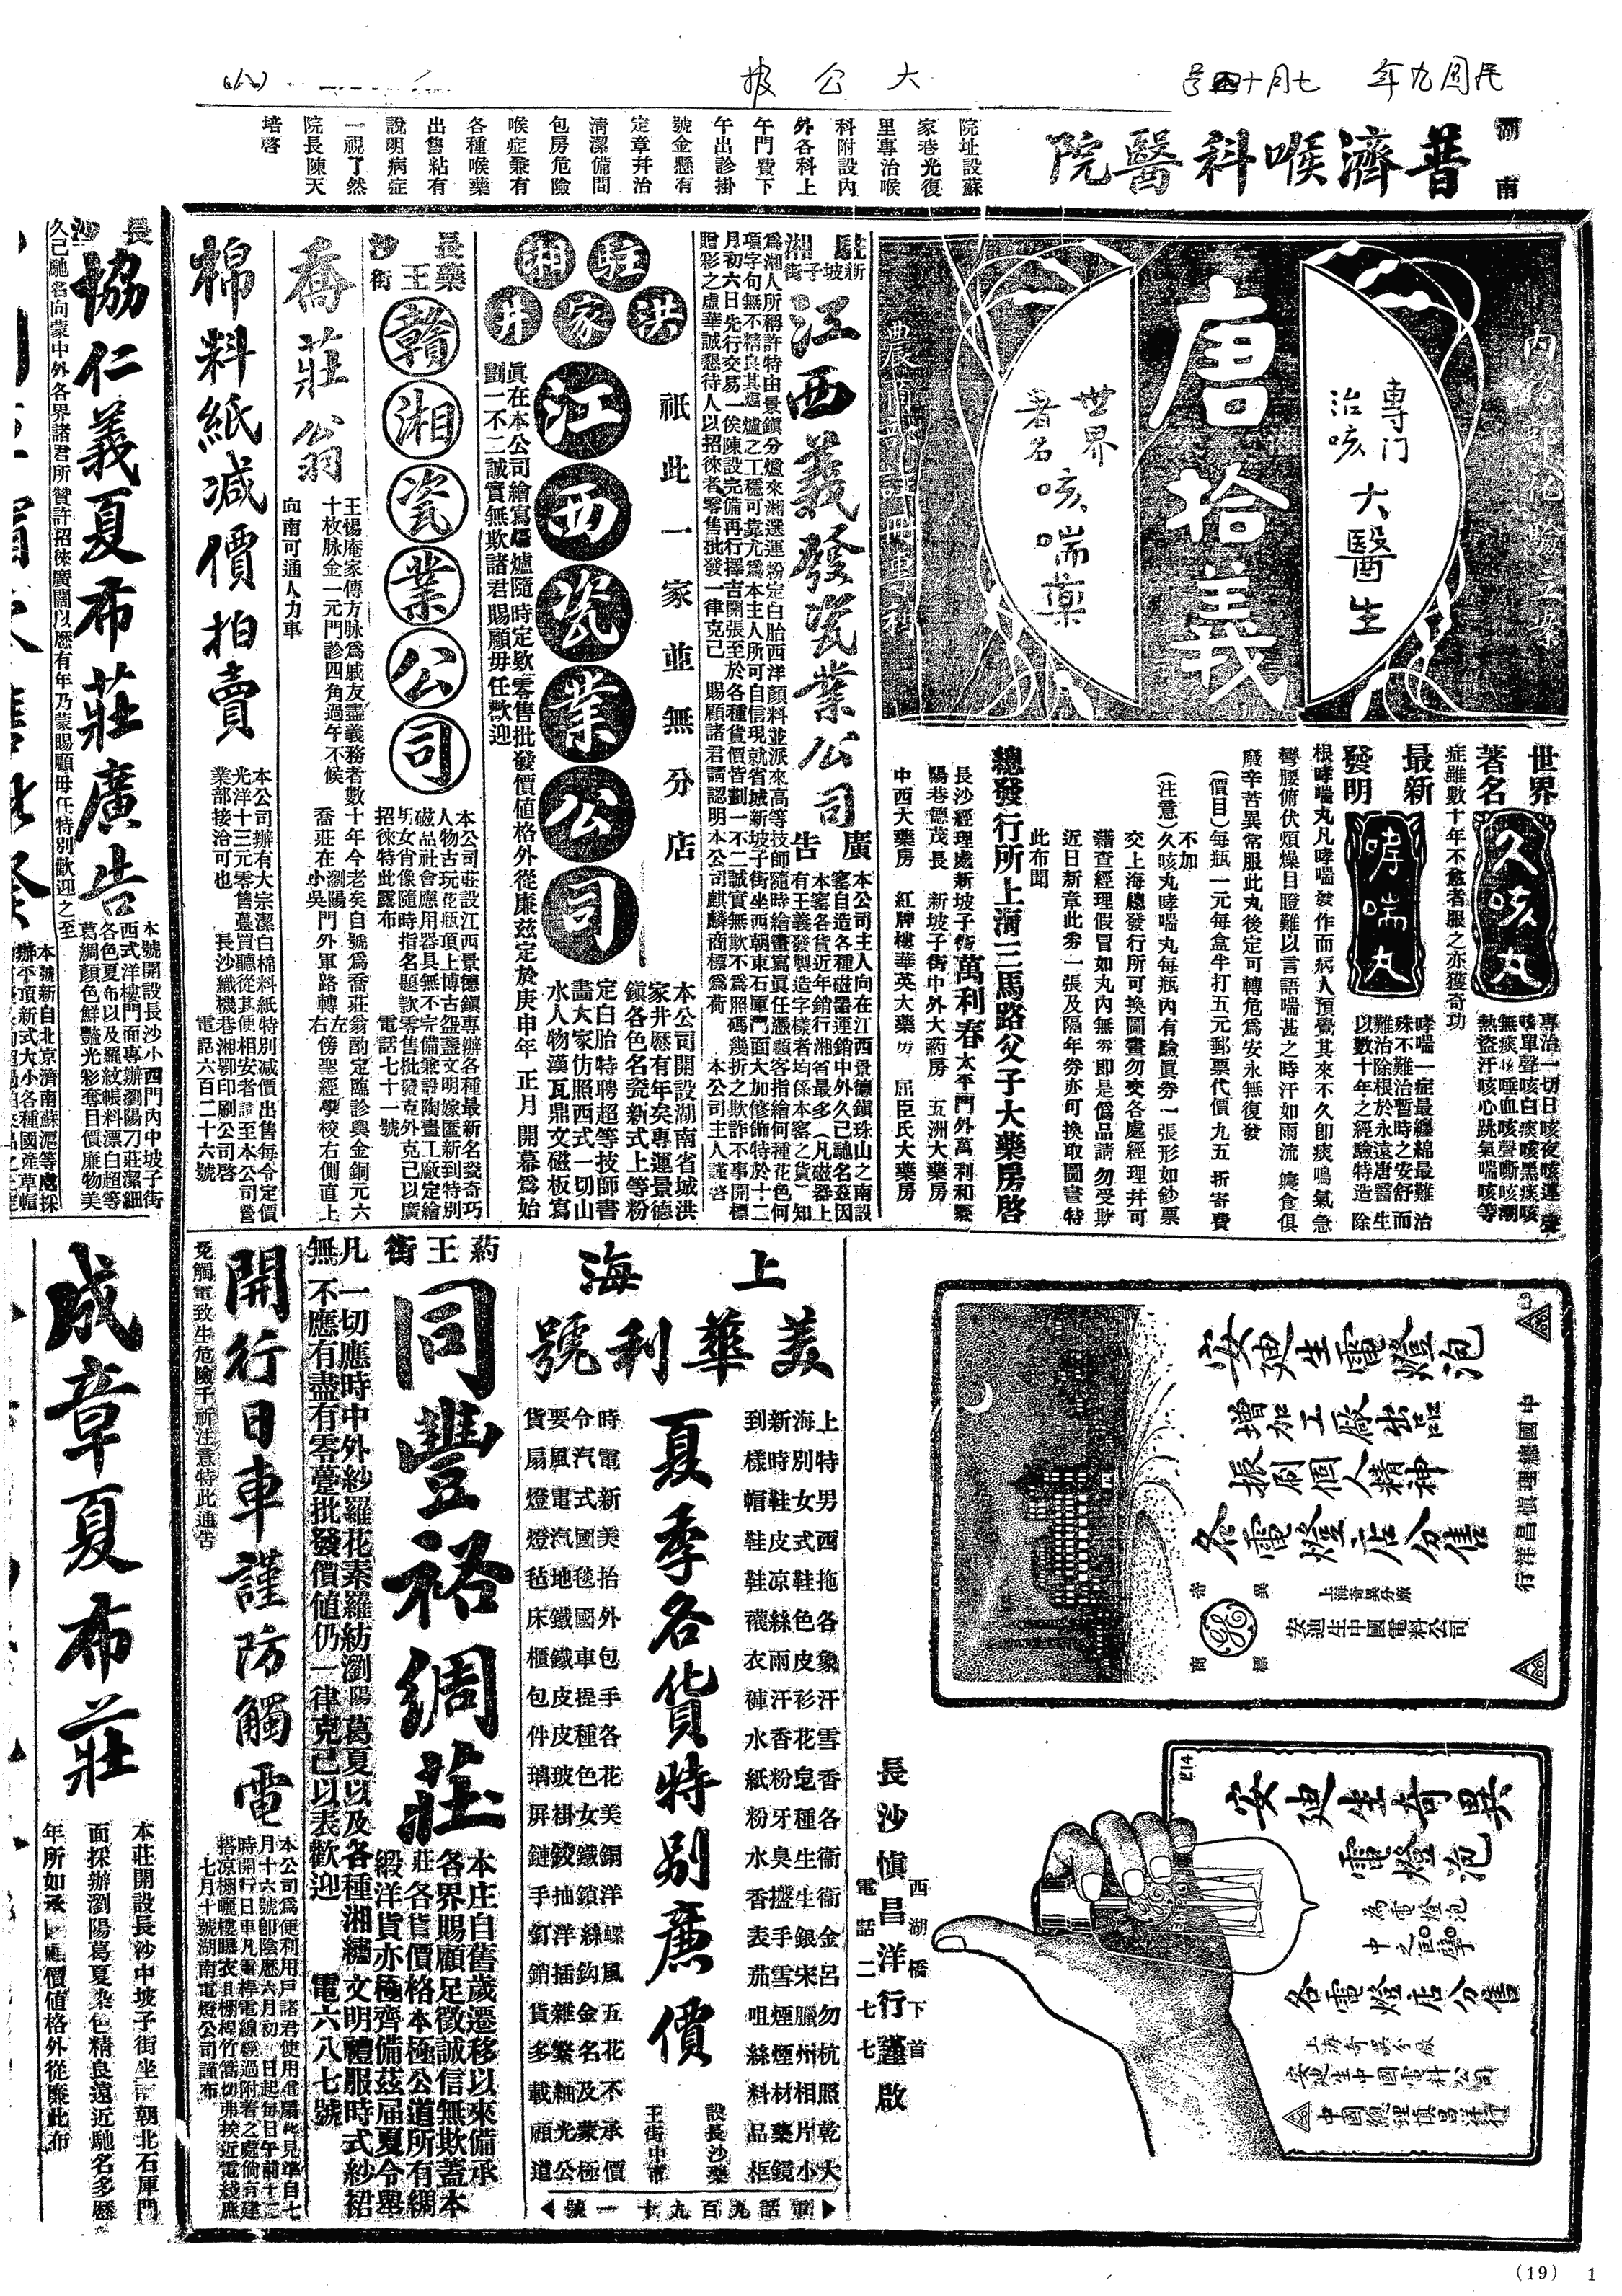 民国九年
七月十四号
大公报
湖南
普濟喉科醫院
院址設蘇
家巷光復
里專治喉
科附設內
外各科上
午門費下
午出診掛
號金懸有
定章幷治
淸潔備間
包房危險
喉症兼有
各種喉藥
出售粘有
說明病症
一視了然
院長陳天
培啓
內務部化驗立案
專门
治咳
大醫生
唐拾義
世界
著名
咳喘藥
農商部註冊專利
世界
著名
久咳丸
專治一切日咳夜咳連聲
咳單聲咳白痰咳黑痰咳
無痰咳唾血咳聲嘶咳潮
熱盜汗咳心跳氣喘咳等
症雖數十年不愈者服之亦獲奇功
最新
發明
哮喘丸
哮喘一症最纏綿最難治
殊不難治暫時之安舒而
難治除根於永遠唐醫生
以數十年之經驗特造除
根哮喘丸凡哮喘發作而病人預覺其來不久卽痰鳴氣急
彎腰俯伏煩燥目瞪難以言語喘甚之時汗如雨流寢食俱
廢辛苦異常服此丸後定可轉危爲安永無復發
(價目)每瓶一元每盒半打五元郵票代價九五折寄費
不加
(注意)久咳丸哮喘丸每瓶內有驗眞券一張形如鈔票
交上海總發行所可換圖畫勿交各處經理幷可
藉查經理假冒如丸內無券卽是僞品請勿受欺
近日新章此券一張及隔年券亦可換取圖畫特
此布聞
總發行所上海三馬路父子大藥房啓
長沙經理處新坡子街萬利春太平門外萬利和縣
陽巷德茂長 新坡子街中外大葯房 五洲大藥房
中西大藥房 紅牌樓華英大藥房 屈臣氏大藥房
駐湘
新坡子街
江西義發瓷業公司
廣告
本公司主人向在江西景德鎭珠山之南設
窰自造各種磁器運銷中外久己馳名茲因
本窰各貨近年銷行湘省最多(凡磁器上
有王義發製造字樣者均係本窰之貨)知
爲湘人所稱許特由景鎭分爐來湘選運粉定白胎西洋顏料並派來高等技師隨時繪畫寫眞任憑顧客指繪何種花色何
項字句無不精良其爐之工穩可靠尤爲本主人所可自信現就省城新坡子街坐西朝東石庫門面大加修飾特於十二
月初六日先行交易一俟陳設完備再行擇吉開張至於各種貨價皆劃一不二誠實無欺不爲照碼幾折之欺詐不事開標
贈彩之虛華誠懇待人以招徠者零售批發一律克己 賜顧諸君請認明本公司麒麟商標爲荷 本公司主人謹啓
祇此一家並無分店
駐湘
洪家井
江西瓷業公司
本公司開設湖南省城洪
家井歷有年矣專運景德
鎭各色名瓷新式上等粉
定白胎特聘超等技師書
畫大家仿照西式一切山
水人物漢瓦鼎文磁板寫
眞在本公司繪寫爐隨時定欵零售批發價値格外從廉茲定於庚申年正月開幕爲始
劃一不二誠實無欺諸君賜顧毋任歡迎
長沙
藥王街
贛湘瓷業公司
本公司莊設江西景德鎭專辦各種最新名瓷奇巧
人物古玩花瓶頂上博古盌盞文明嫁匲新到特別
磁品社會應用器具無不完備兼設陶畫工廠定繪
男女肖像隨時指名題款零售批發克外克己以廣
招徠特此露布 電話七十一號
喬莊翁
王惕庵家傳方脉爲戚友盡義務者數十年今老矣自號爲喬莊翁酌定臨診與金銅元六
十枚脉金一元門診四角過午不候
喬莊在小吳門外軍路轉左傍聖經學校右側直上
向南可通人力車
棉料紙減價拍賣
本公司辦有大宗潔白棉料紙特別減價出售每令定價
光洋十三元零售躉買聽從其便相安者請至本公司營
業部接洽可也 長沙織機巷湘鄂印刷公司啓
電話六百二十六號
長沙
協仁義夏布莊廣告
本號開設長沙小西門內中坡子街
西式洋樓門面專辦瀏陽刀莊潔細
各色夏布以及羅紋帳料漂白超等
葛綢顏色鮮豔光彩奪目價廉物美
久已馳名向蒙中外各界諸君所贊許招徠廣闊以歷有年乃蒙賜顧毋任特別歡迎之至
本號新自北京濟南蘇滬等處採
辦平頂新式大小各種國產草帽
成章夏布莊
本莊開設長沙中坡子街坐朝北石庫門
面採辦瀏陽葛夏染色精良遠近馳名多歷
年所如承顧價値格外從廉此布
開行日車謹防觸電
本公司爲便利用戶諸君使用電扇起見準自七
月十六號卽陰歷六月初一日起每日午前十二
時開行日車凡電桿電線經過附着之處倘有建
搭凉棚曬樓曝衣推棚桿竹篙切弗挨近電綫庶
免觸電致生危險千祈注意特此通告
七月十號湖南電燈公司謹布
葯王街
同豐裕綢莊
本庄自舊歲遷移以來備承
各界賜顧足徵誠信無欺蓋本
莊各貨價格本極公道所有綢
緞洋貨亦極齊備茲屆夏令舉
凡一切應時中外紗羅花素羅紡瀏陽葛夏以及各種湘繡文明禮服時式紗裙
無不應有盡有零躉批發價値仍一律克己以表歡迎 電六八七號
上海
美華利號
夏季各貨特別廉價
上特男西拖各象汗雪香各衞衞金呂勿杭照乾大
海別女式鞋色皮衫花皂種生生銀宋臘州相片小
新時鞋皮凉絲雨汗香粉牙臭盤手雪煙煙材藥鏡
到樣帽鞋鞋襪衣褲水紙粉水香表茄咀絲料品框
時電新美抬外包手各花美銅洋螺風五花不承價
令汽式國毯國車提種色女鐵鎖絲鈎金名及蒙極
要風電汽地鐵鐵皮皮玻掛鉸抽洋插雜繁細光公
貨扇燈燈毡床櫃包件璃屏鏈手釘銷貨多載顧道
設長沙藥
王街中市
電話九百九十一號
安廸生電燈泡
增加工廠出品
振刷個人精神
各電燈店分售
奇異
商標
上海奇異分廠
安迪生中國電料公司
中國總理愼昌洋行
E9
E14
安廸生奇異
電燈泡
為電燈泡
中之巨擘
各電燈店分售
上海奇異分廠
安迪生中國電料公司
中國總理愼昌洋行
長沙愼昌洋行謹啟
西湖橋下首
電話二七七
(19)
1